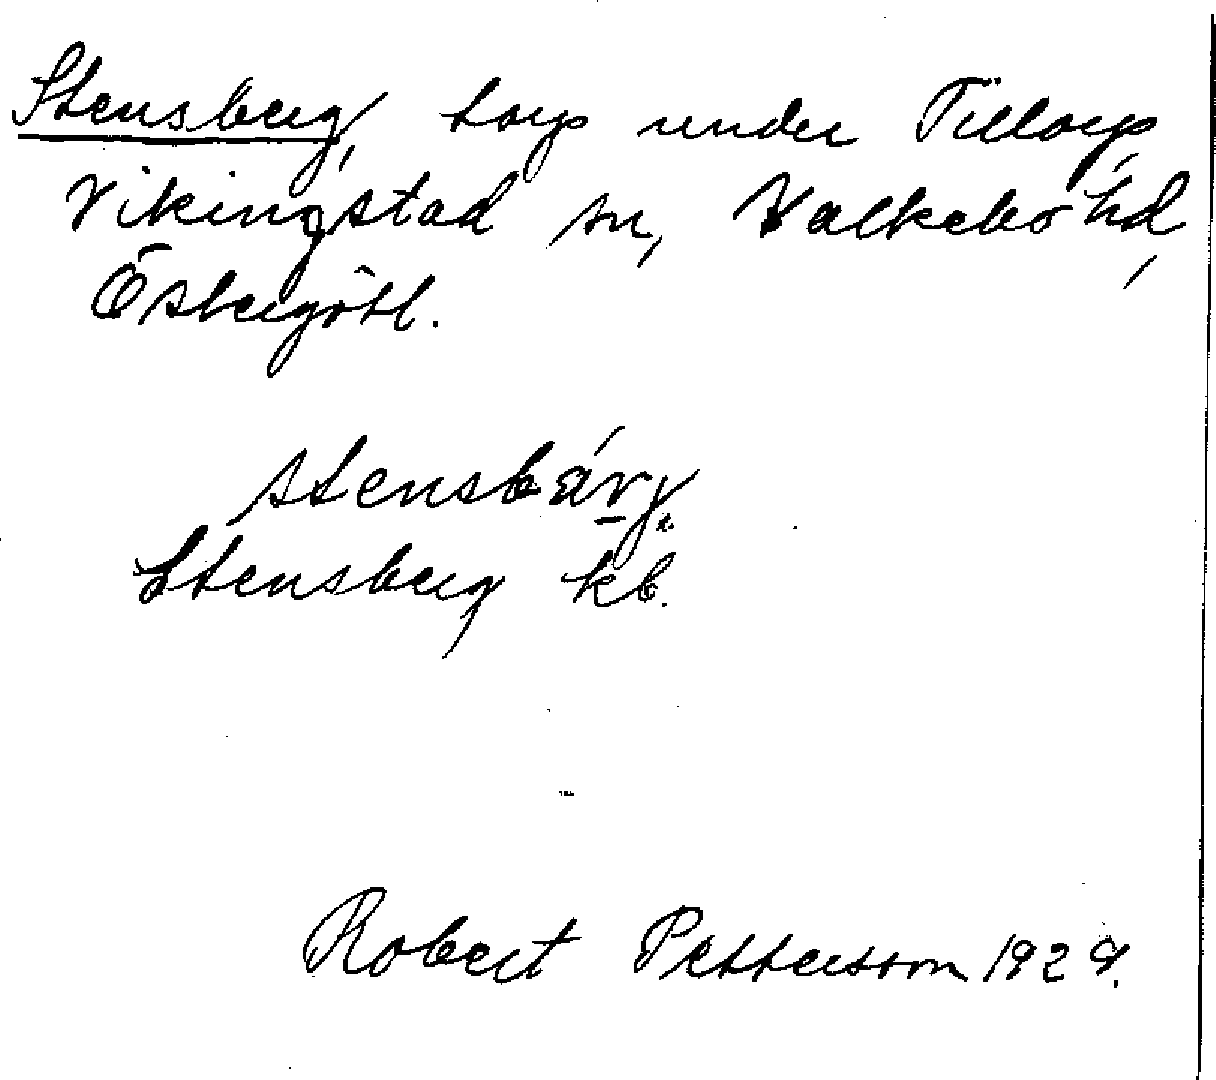 Stensberg, torp under Tillorp,
Vikingstad sn, Valkebo hd,
Östergötl.
stensbärj.
Stensberg kb.
Robert Pettersson 1929.